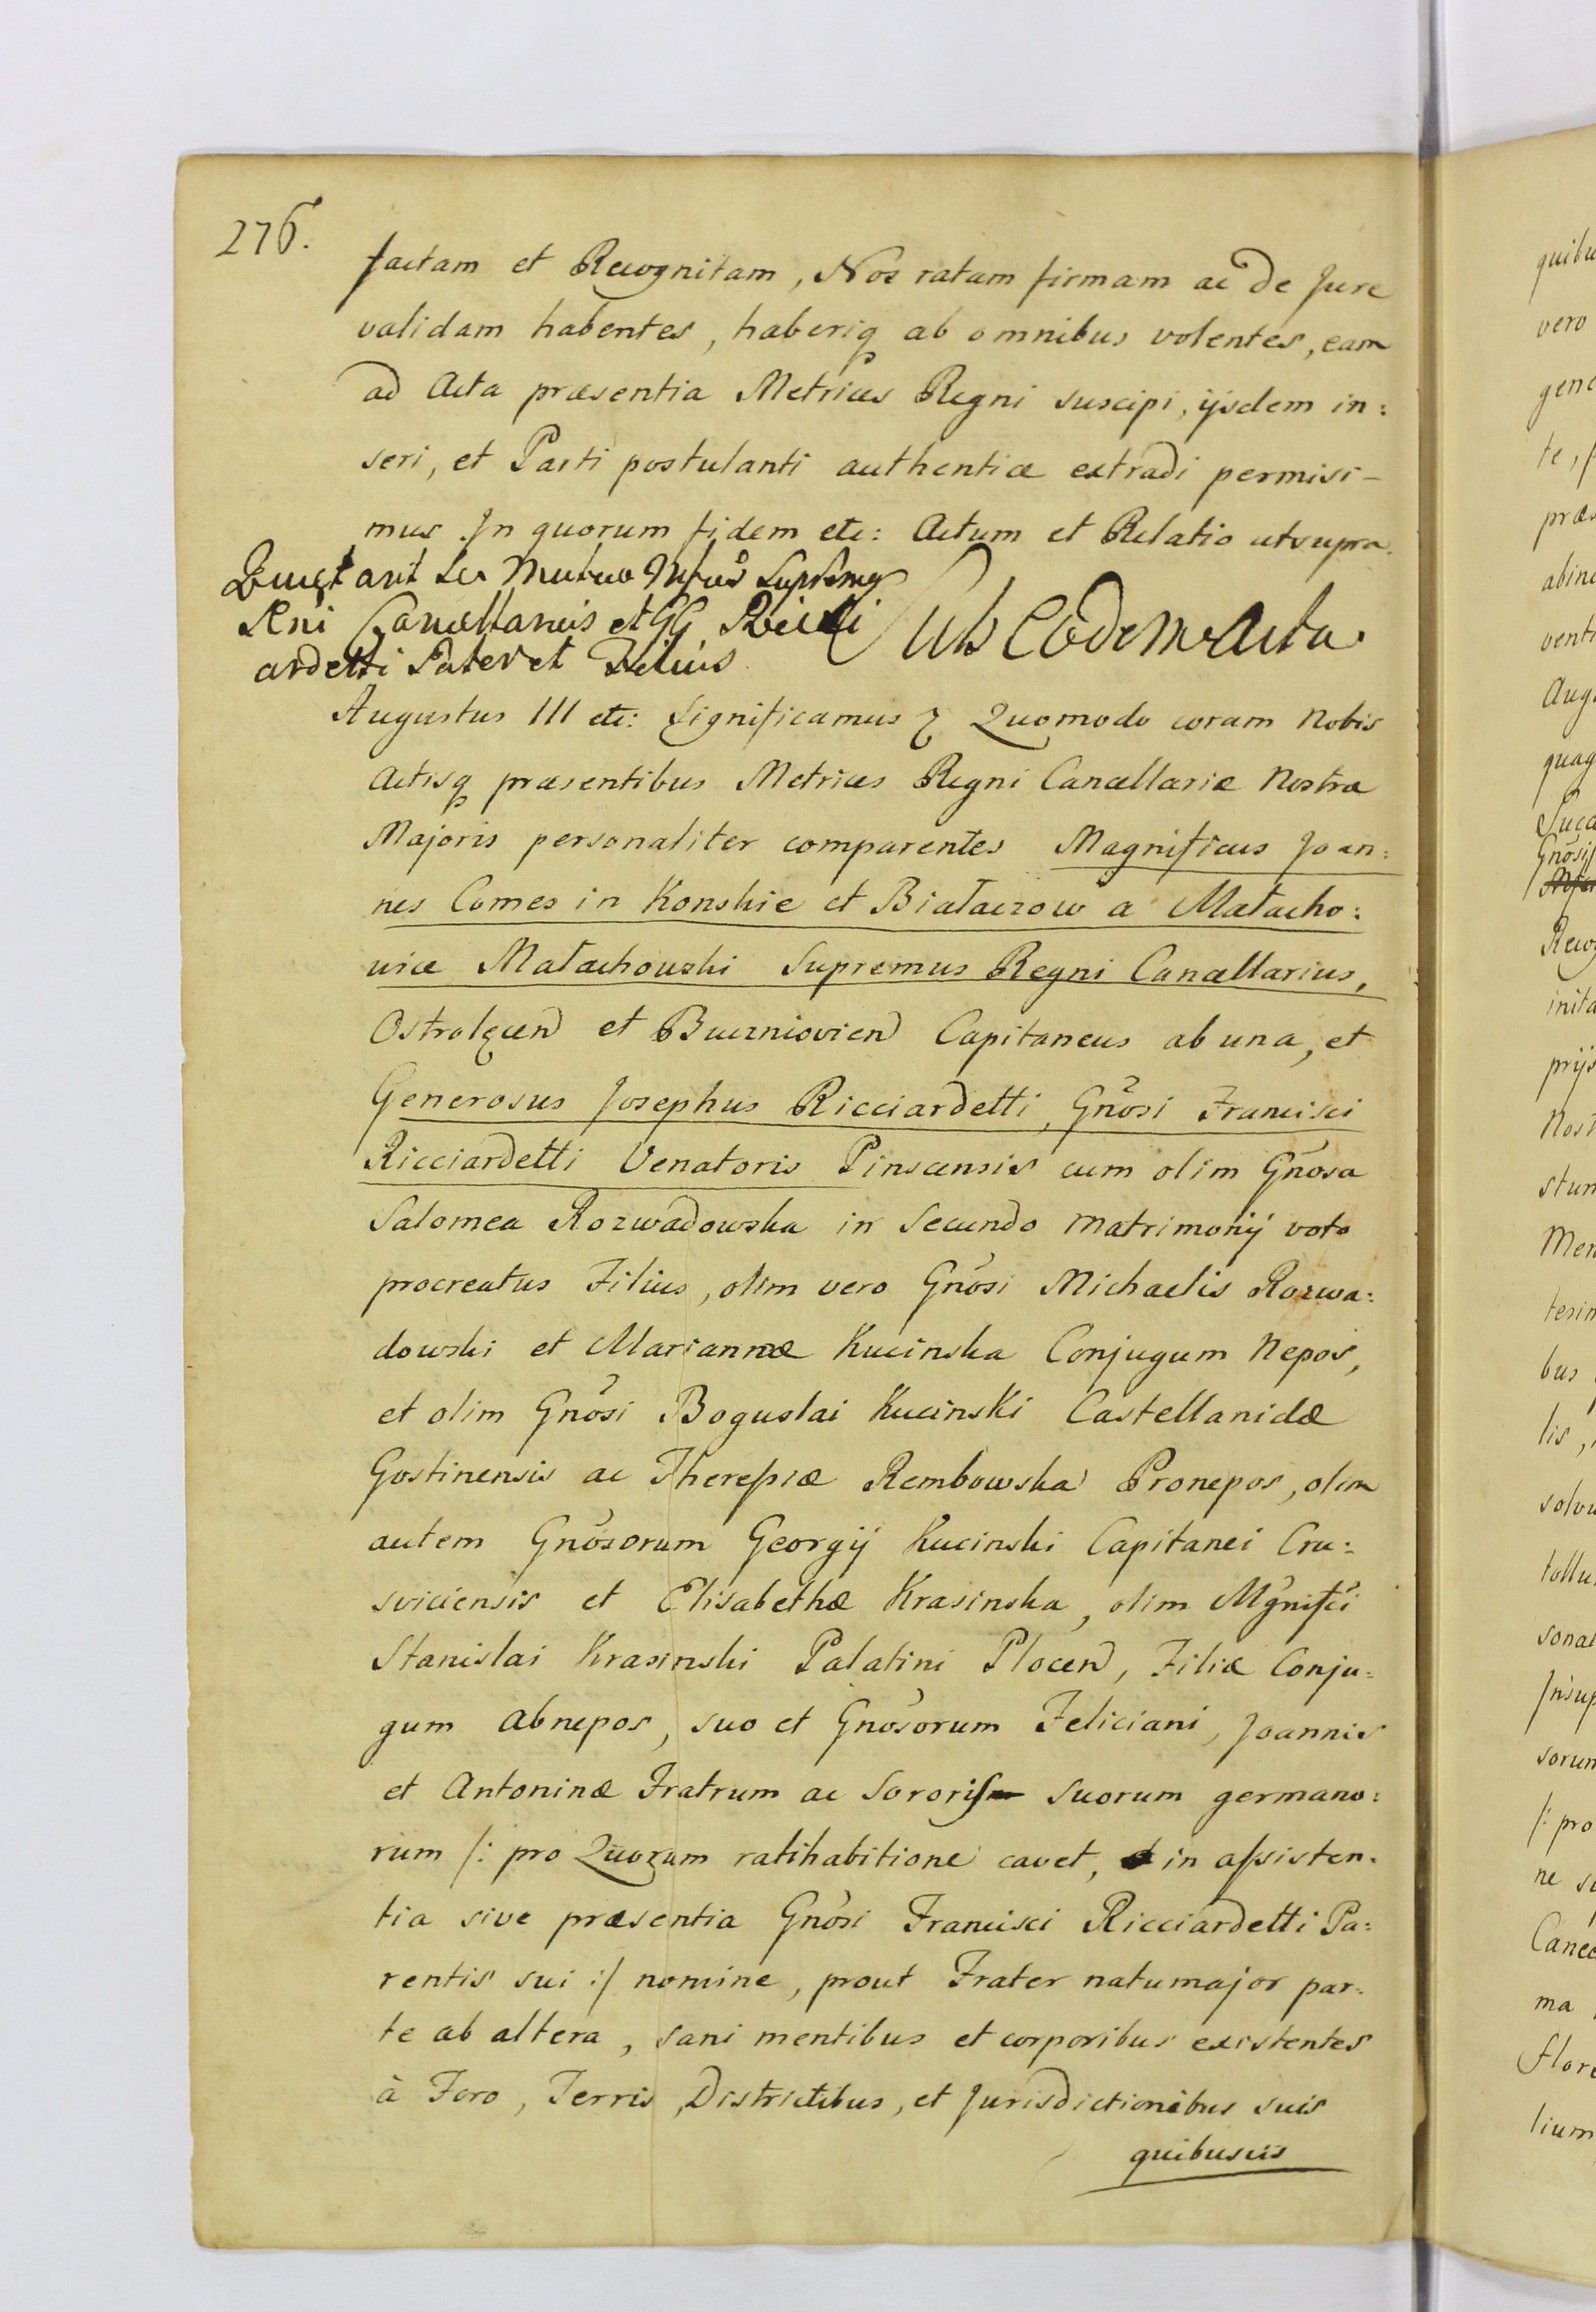 276.
factam et Recognitam, Nos ratam firmam ac de Jure
validam habentes, haberiq ab omnibus volentes, eam
ad Acta præsentia Metrices Regni suscipi, ijsdem in:
seri, et Parti postulanti authentice extradi permisi-
mus. In quorum fidem etc: Actum et Relatio utsupra.
Quietant se mutuo Mfcus Supremus
Regni Cancellarius et GG Ricci
ardetti Pater et Filius.
Sub Eodem Actu
Augustus III etc: Significamus Quomodo coram Nobis
Actisq præsentibus Metrices Regni Cancellariæ Nostræ
Majoris personaliter comparentes Magnificus Joan:
nes Comes in Konskie et Białaczow a Małacho:
vice Małachowski Supremus Regni Cancellarius,
Ostrolęcen et Buczniovien Capitaneus ab una, et
Generosus Josephus Ricciardetti, Gnosi Francisci
Ricciardetti Venatoris Pinscensis cum olim Gnosa
Salomea Rozwadowska in Secundo matrimonij voto
procreatus Filius, olim vero Gnosi Michaelis Rozwa:
dowski et Mariannæ Kucinska Conjugum Nepos,
et olim Gnosi Boguslai Kucinski Castellanidæ
Gostinensis ac Theresiæ Rembowska Pronepos, olim
autem Gnosorum Georgij Kucinski Capitanei Cru:
sviciensis et Elisabethæ Krasinska, olim Mgnifci
Stanislai Krasinski Palatini Plocen, Filiæ Conju:
gum Abnepos, suo et Gnosorum Feliciani, Joannis
et Antoninæ Fratrum ac Sororis suorum germano:
rum /: pro Quorum ratihabitione cavet, in assisten:
tia sive præsentia Gnosi Francisci Ricciardetti Pa:
rentis sui :/ nomine, prout Frater natumajor par:
te ab altera, sani mentibus et corporibus existentes
à Foro, Terris, Districtibus, et Jurisdictionibus suis
quibusvis
quibu
vero
gene
te,
præs
abin
venti
Aug
quag
Gnosi
Recog
inita
prijs
Nost
stum
Men
terin
bus
lis,
solvu
tollu
sonal
Insup
sorum
/: pro
ne su
Cance
ma
Flore
lium